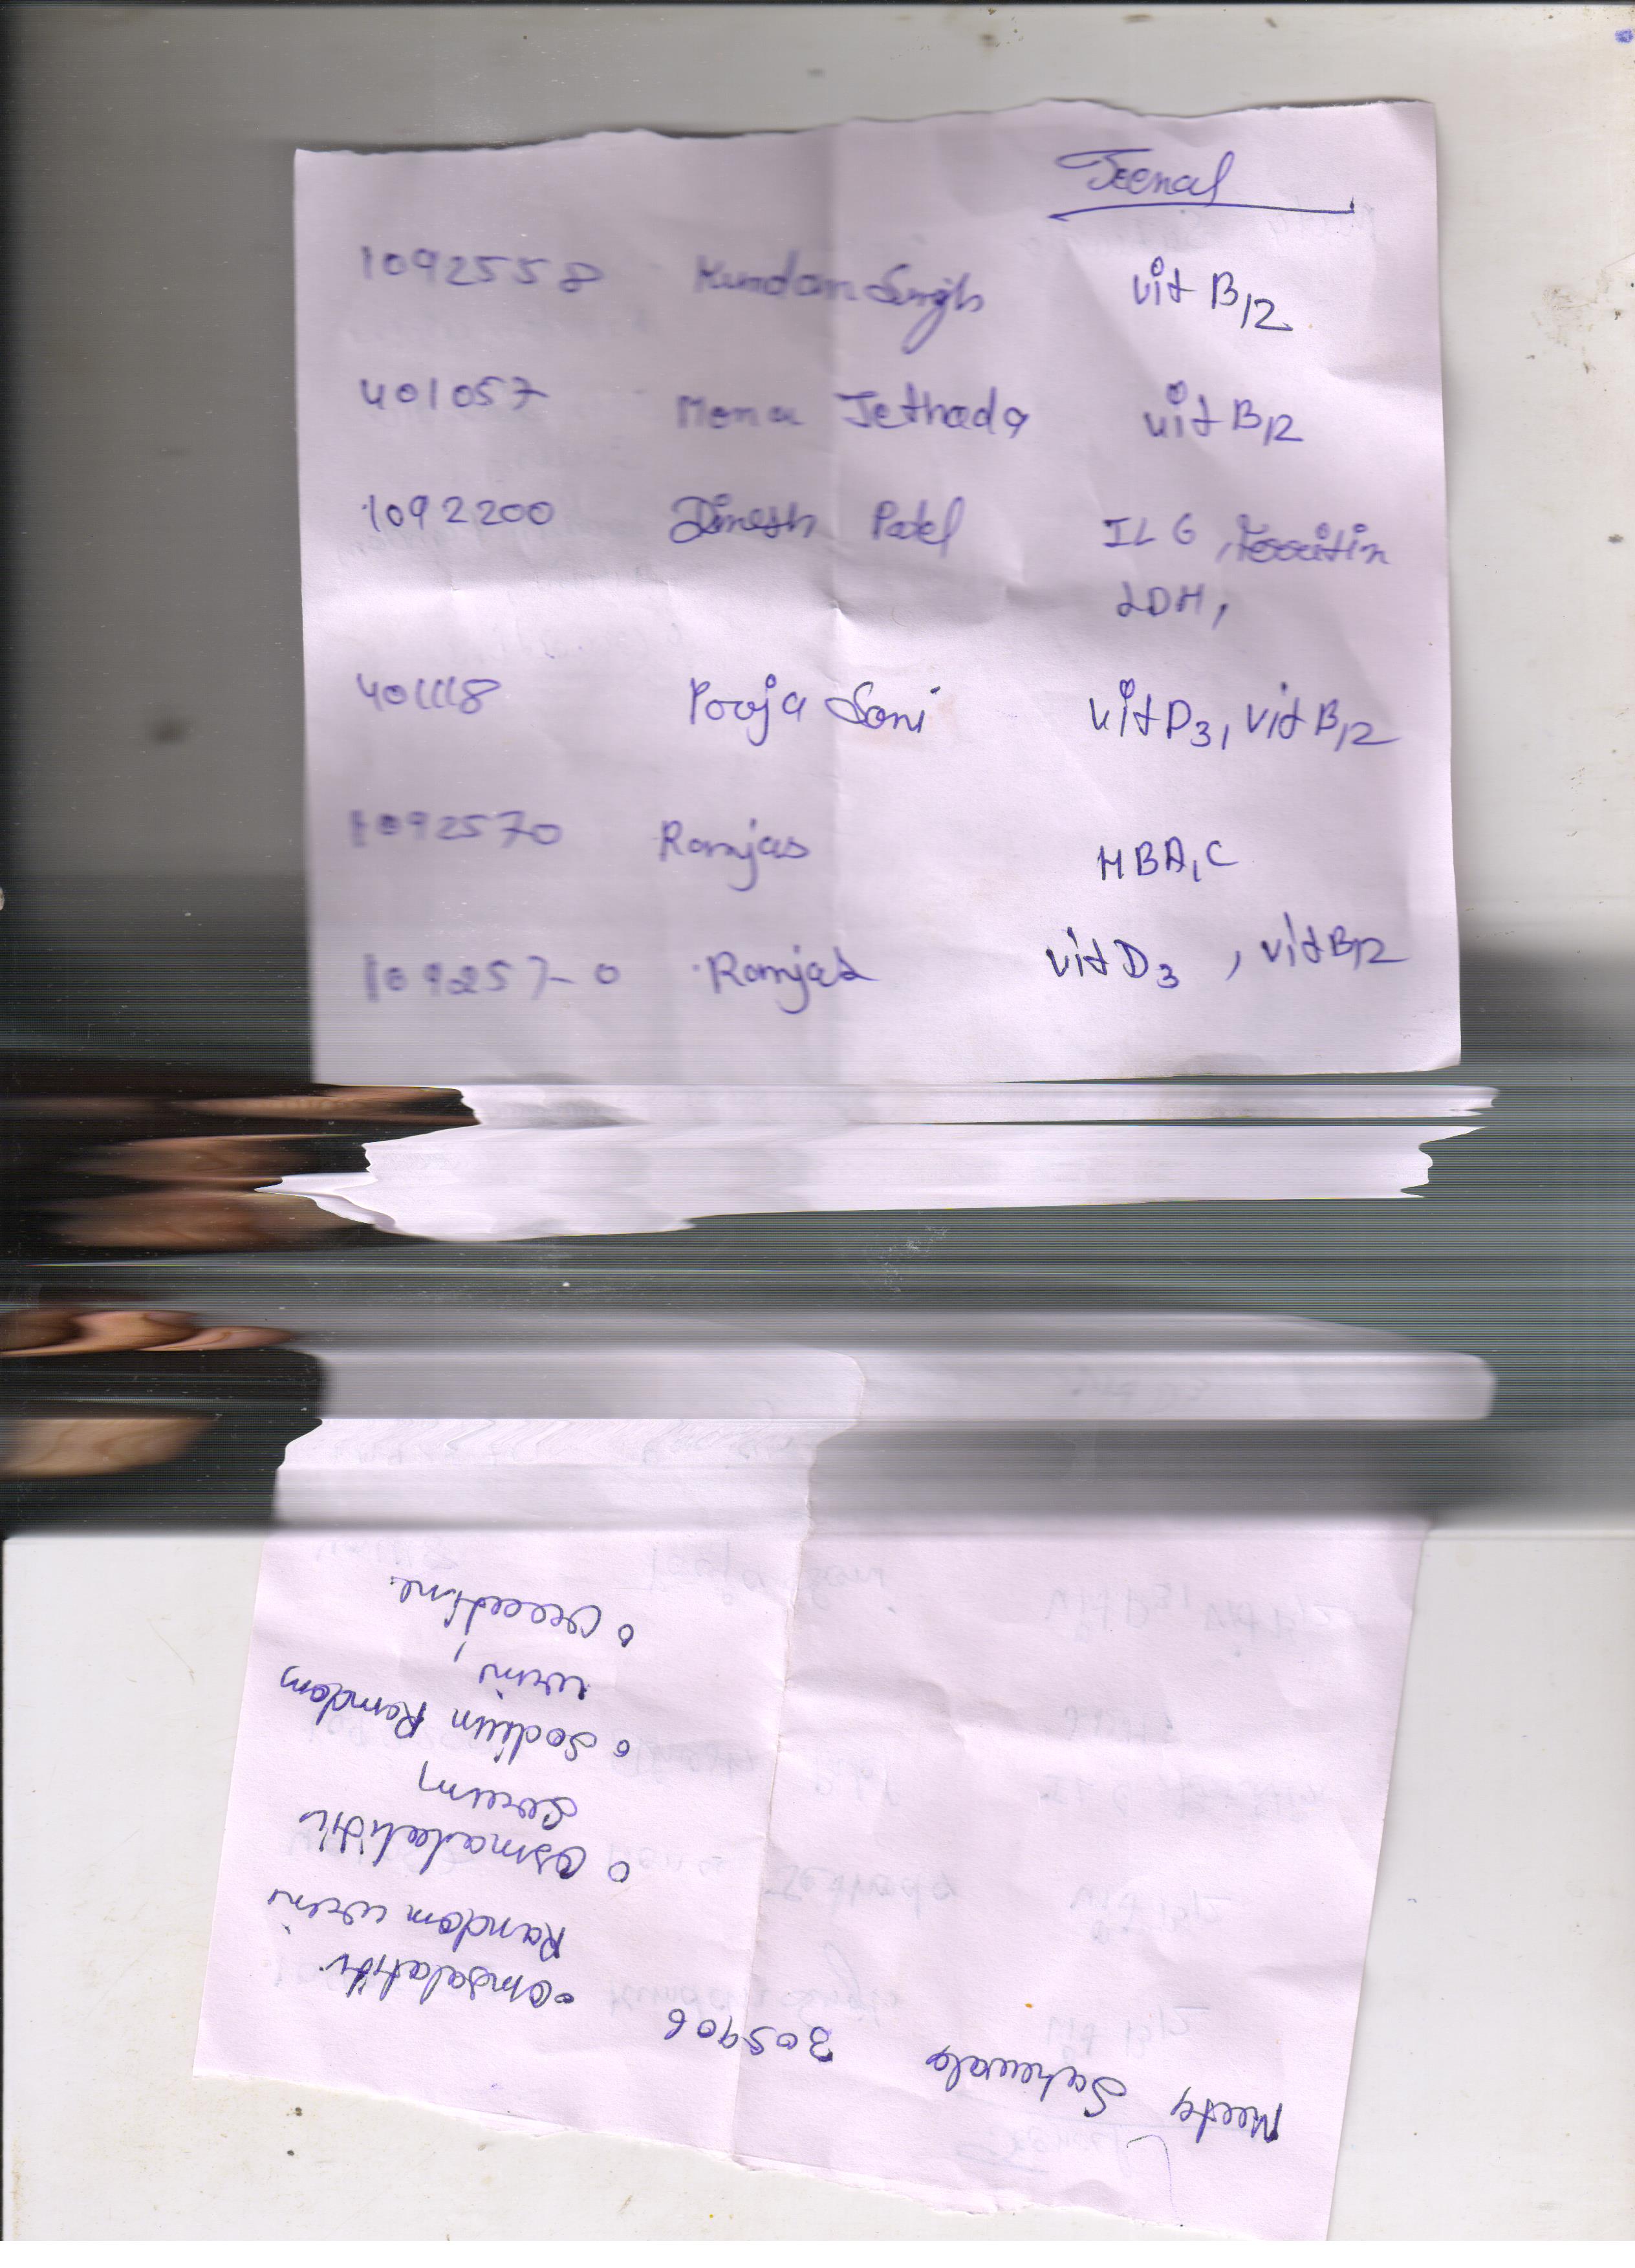 Jeenal
1092558 Kundan Singh vit B12
401057 Mona Jethada vit B12
1092200 Dinesh Patel IL6, Ferritin
LDH,
401118 Pooja Soni vit D3, vit B12
1092570 Ramjas HBA1C
1092570 Ramjas vit D3, vit B12
305906
Random urin
Serum
Sodium Random
urin,